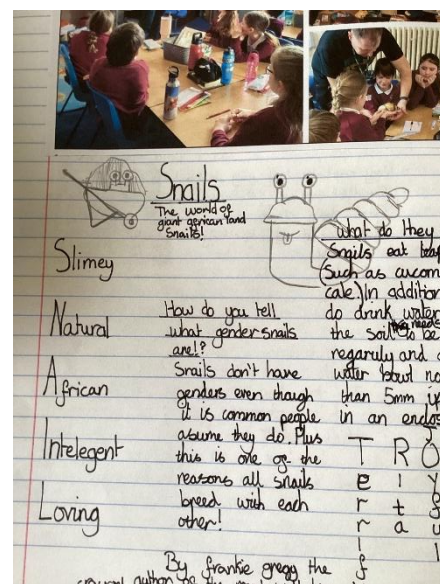 Snails
The world of
giant african land
Snails!
Slimey
Natural
African
Intelegent
Loving
How do you tell
what gender snails
are!?
Snails don't have
genders even though
it is common people
asume they do. Plus
this is one of the
reasons all snails
breed with each
other!
what do they
Snails eat
(Such as
In addition
do drink water
the soil needs to be
regaruly and a
water bowl no
than 5mm
in an
T R O
e i y
r t
r a u
i l
f
By frankie gregg the
author of the